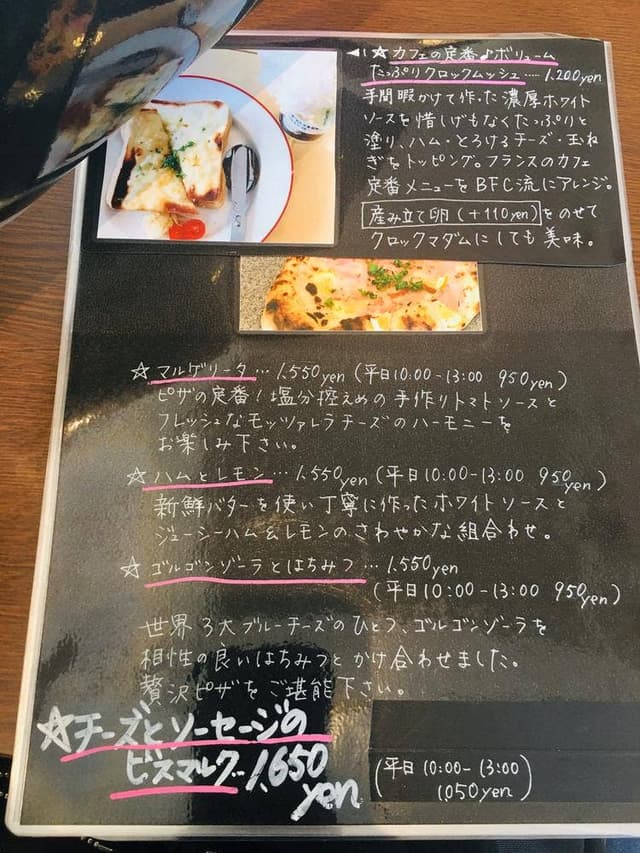 ◀☆カフェの定番♪ボリューム
たっぷりクロックムッシュ…‥1,200yen
手間暇かけて作った濃厚ホワイト
ソースを惜しげもなくたっぷりと
塗り、ハム・とろけるチーズ・玉ね
ぎをトッピング。フランスのカフェ
定番メニューをBFC流にアレンジ。
産み立て卵(+110yen)をのせて
クロックマダムにしても美味。
☆マルゲリータ…1,550yen(平日10:00-13:00 950yen)
ピザの定番!塩分控えめの手作りトマトソースと
フレッシュなモッツァレラチーズのハーモニーを
お楽しみ下さい。
☆ハムとレモン…1,550yen(平日10:00-13:00 950yen)
新鮮バターを使い丁寧に作ったホワイトソースと
ジューシーハム&レモンのさわやかな組合わせ。
☆ゴルゴンゾーラとはちみつ…1,550yen
(平日10:00-13:00 950yen)
世界3大ブルーチーズのひとつ、ゴルゴンゾーラを
相性の良いはちみつとかけ合わせました。
贅沢ピザをご堪能下さい。
☆チーズとソーセージの
ビスマルク-1,650yen
(平日10:00-13:00
1,050yen)